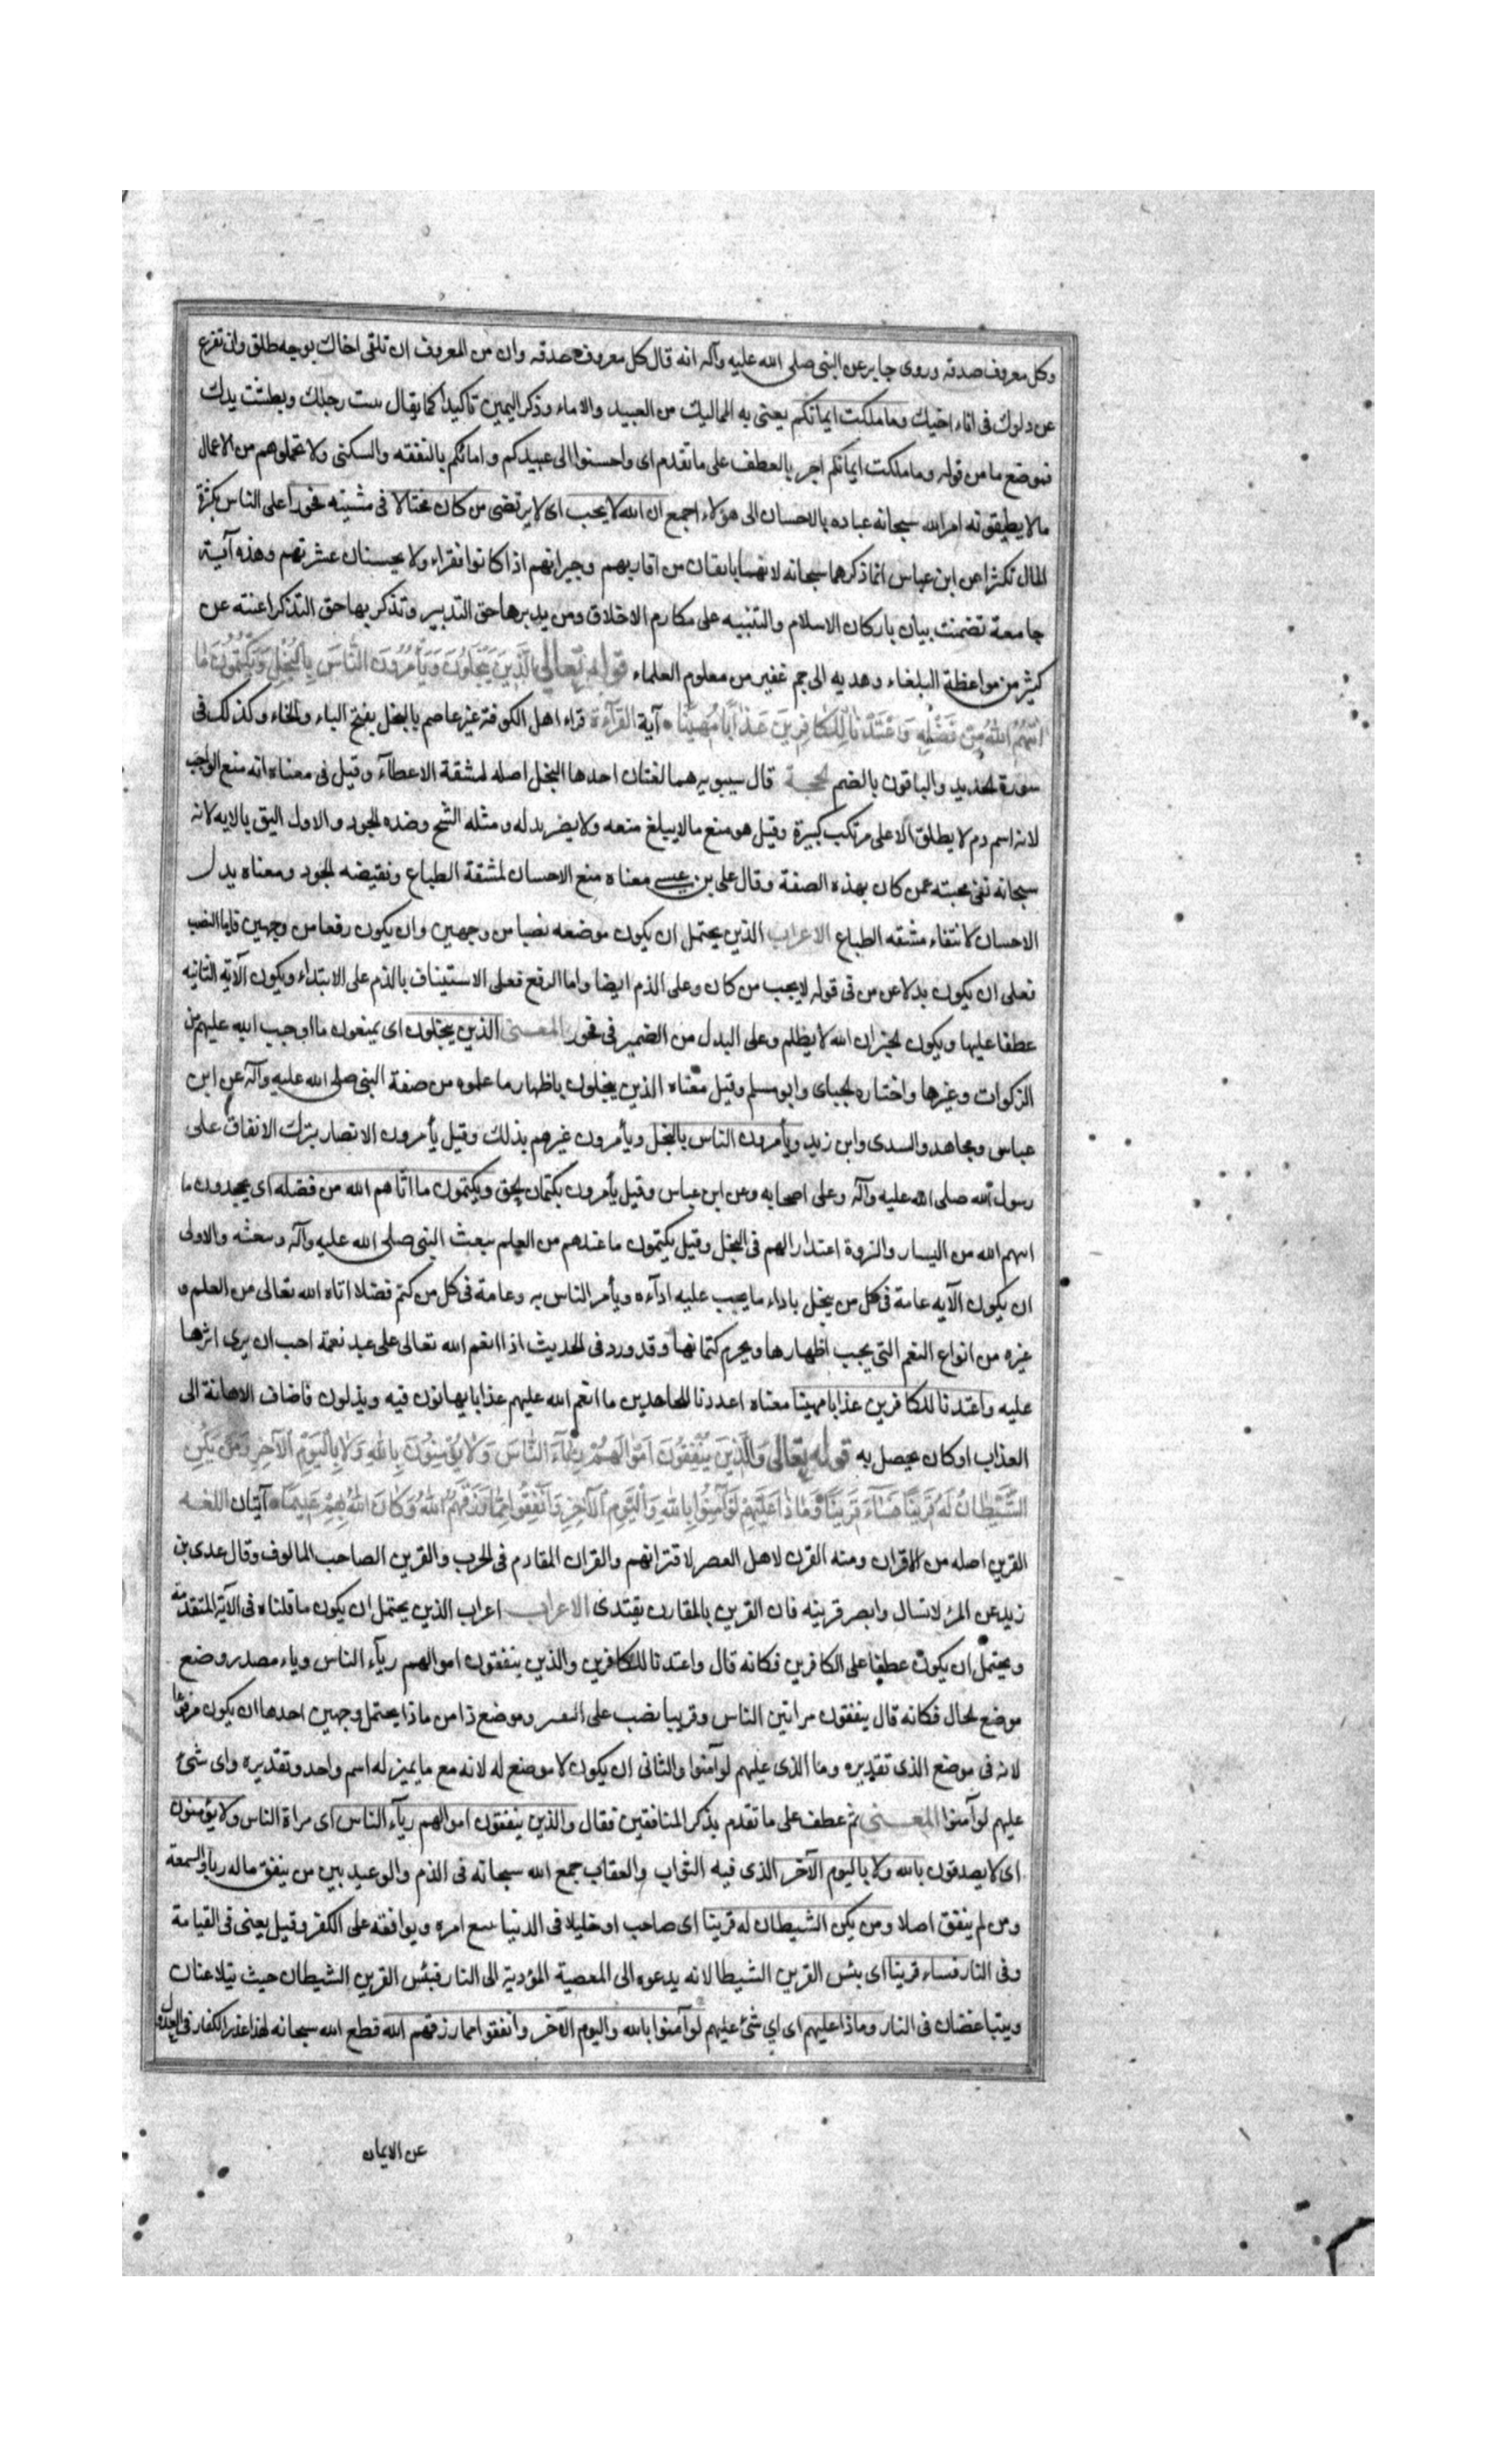 وكل معروف صدقه وروى جابر عن النبى صلى الله عليه وآله انه قال كل معروف صدقه وان من المعروف ان تلقى اخاك بوجه طلق وان تفرغ
من دلوك فى اناء اخيك وما ملكت ايمانكم يعنى به المماليك من العبيد والاماء وذكر اليمين تاكيدا كما يقال مشت رجلك وبطشت يدك
فموضع ما من قوله وما ملكت ايمانكم اجر بالعطف على ما تقدم اى واحسنوا الى عبيدكم وامائكم بالنفقه والسكنى ولا تحملوهم من الاعمال
مالا يطيقونه امر الله سبحانه عباده بالاحسان الى هؤلاء اجمع ان الله لا يحب اى لا يرتضى من كان مختالا فى مشيته فخورا على الناس بكثرة
المال تكثرا عن ابن عباس انما ذكرهما سبحانه لانهما يانفان من اقاربهم وجيرانهم اذا كانوا فقراء ولا يحسنان عشرتهم وهذه آية
جامعة تضمنت بيان باركان الاسلام والتنبيه على مكارم الاخلاق ومن يدبرها حق التدبير وتذكر بها حق التذكر اغنته عن
كثير من مواعظة البلغاء وهديه الى جم غفير من معلوم العلماء قوله تعالى الَّذِينَ يَبْخَلُونَ وَيَأْمُرُونَ النَّاسَ بِالْبُخْلِ وَيَكْتُمُونَ مَا
اتَيهُمُ اللهُ مِنْ فَضْلِهِ وَاعْتَدْنَا لِلْكَافِرِينَ عَذَابًا مُهِينًا آية القرآءة قراء اهل الكوفة غير عاصم بالبخل بفتح الباء والخاء وكذلك فى
سورة الحديد والباقون بالضم الحجة قال سيبويه هما لغتان احدها البخل اصله لمشقة الاعطآء وقيل فى معناه انه منع الواجب
لانه اسم دم لا يطلق الا على مرتكب كبيرة وقيل هو منع مالا يبلغ منعه ولا يضر بدله ومثله الشح وضده الجود والاول اليق بالايه لانه
سبحانه نفى محبته عمن كان بهذه الصفة وقال على بن عيسى معناه منع الاحسان لمشقة الطباع ونقيضه الجود ومعناه بدل
الاحسان لانتفاء مشقه الطباع الاعراب الذين يحتمل ان يكون موضعه نصبا من وجهين وان يكون رفعا من وجهين فاما النصب
فعلى ان يكون بدلا عن من فى قوله لا يحب من كان وعلى الذم ايضا واما الرفع فعلى الاستيناف بالذم على الابتداء ويكون الآية الثانيه
عطفا عليها ويكون الخبر ان الله لا يظلم وعلى البدل من الضمير فى فخور المعنى الذين يبخلون اى يمنعون ما اوجب الله عليهم من
الزكوات وغيرها واختاره الجباى وابو مسلم وقيل معناه الذين يبخلون باظهار ما علموه من صفة النبى صلى الله عليه وآله عن ابن
عباس ومجاهد والسدى وابن زيد ويأمرون الناس بالبخل ويأمرون غيرهم بذلك وقيل يأمرون الانصار بترك الانفاق على
رسول الله صلى الله عليه وآله وعلى اصحابه وعن ابن عباس وقيل يأمرون بكتمان الحق ويكتمون ما اتاهم الله من فضله اى يجحدون ما
اتيهم الله من اليسار والثروة اعتذارا لهم فى البخل وقيل يكتمون ما عندهم من العلم ببعث النبى صلى الله عليه وآله ومبعثه والاولى
ان يكون الآيه عامة فى كل من يبخل باداء ما يجب عليه ادآءه ويأمر الناس به وعامة فى كل من كتم فضلا اتاه الله تعالى من العلم و
غيره من انواع النعم التى يجب اظهارها ويحرم كتمانها وقد ورد فى الحديث اذا انعم الله تعالى على عبد نعمة احب ان يرى اثرها
عليه واعتدنا للكافرين عذابا مهينا معناه اعددنا للجاحدين ما انعم الله عليهم عذابا يهانون فيه ويذلون فاضاف الاهانة الى
العذاب اذ كان يحصل به قوله تعالى وَالَّذِينَ يُنْفِقُونَ اَمْوَالَهُمْ رِئَآءَ النَّاسِ وَلَا يُؤْمِنُونَ بِاللهِ وَلَا بِالْيَوْمِ الْآخِرِ وَمَنْ يَكُنِ
الشَّيْطَانُ لَهُ قَرِينًا فَسَآءَ قَرِينًا وَمَاذَا عَلَيْهِمْ لَوْ آمَنُوا بِاللهِ وَالْيَوْمِ الْآخِرِ وَاَنْفَقُوا مِمَّا رَزَقَهُمُ اللهُ وَكَانَ اللهُ بِهِمْ عَلِيمًا آيتان اللغه
القرين اصله من الاقران ومنه القرن لاهل العصر لاقترانهم والقران المقادم فى الحرب والقرين الصاحب المالوف وقال عدى بن
زيد عن المرء لا تسال وابصر قرينه فان القرين بالمقارن يقتدى الاعراب اعراب الذين يحتمل ان يكون ما قلناه فى الآية المتقدمة
ويحتمل ان يكون عطفا على الكافرين فكانه قال واعتدنا للكافرين والذين ينفقون اموالهم رياء الناس ورياء مصدر وضع
موضع الحال فكانه قال ينفقون مرائين الناس وقرينا نصب على التفسير وموضع ذا من ماذا يحتمل وجهين احدها ان يكون مرفوعا
لانه فى موضع الذى تقديره وما الذى عليهم لو آمنوا والثانى ان يكون لا موضع له لانه مع ما بمنزله اسم واحد وتقديره واى شئ
عليهم لو آمنوا المعنى ثم عطف على ما تقدم بذكر المنافقين فقال والذين ينفقون اموالهم رياء الناس اى مراة الناس ولا يؤمنون
اى لا يصدقون بالله ولا باليوم الآخر الذى فيه الثواب والعقاب جمع الله سبحانه فى الذم والوعيد بين من ينفق ماله رياء والسمعة
ومن لم ينفق اصلا ومن يكن الشيطان له قرينا اى صاحب او خليلا فى الدنيا يتبع امره ويوافقه على الكفر وقيل يعنى فى القيامة
وفى النار فساء قرينا اى بئس القرين الشيطا لانه يدعوه الى المعصية المؤدية الى النار فبئس القرين الشيطان حيث يتلاعنان
ويتباغضان فى النار وماذا عليهم اى اي شئ عليهم لو آمنوا بالله واليوم الآخر وانفقوا مما رزقهم الله قطع الله سبحانه لهذا عذر الكفار فى العدول
عن الايمان